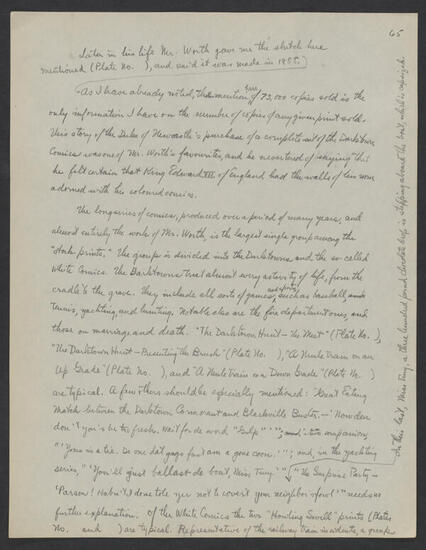 65
Later in his life Mr. Worth gave me the sketch here
mentioned (Plate No. ), and said it was made in
As I have already noted, the mention of 73,000 copies sold is the
only information I have on the number of copies of any given print sold.
This story of the Duke of Newcastle's purchase of a complete set of the Darktown
Comics was one of Mr. Worth's favourites, and he never tired of saying that
he felt certain that King Edward VII of England had the walls of his room
adorned with his coloured comics.
The long series of comics, produced over a period of many years, and
almost entirely the work of Mr. Worth, is the largest single group among the
"Stock prints." The group is divided into the Darktowns and the so-called
White Comics. The Darktowns treat almost every activity of life, from the
cradle to the grave. They include all sorts of games, such as baseball,
tennis, yachting, and hunting. Notable also are the fire department ones, and
those on marriage and death. "The Darktown Hunt - the Meet" (Plate No. ),
"The Darktown Hunt - Presenting the Brush" (Plate No. ), "A Mule Train on an
Up Grade" (Plate No. ), and "A Mule Train on a Down Grade" (Plate No. )
are typical. A few others should be especially mentioned: "Great Eating
Match between the Darktown Cormorant and Blackville Buster, - 'Now den
don't you's be too fresh. Wait for de word "Gulp"'"; its companion
"'Yous is a tie. De one dat gags fust am a gone coon.'"; and, in the yachting
series, "'You'll gust ballast de boat, Miss Tiny'" "The Surprise Party -
'Parson! Habn't I done tole yer not to covert you neighbors fowl'" needs no
further explanation. Of the White Comics the two "Howling Swell" prints (Plates
No. and ) are typical. Representative of the railway train incidents, a group
In this last, Miss Tiny, a three hundred pound chocolate lady, is stepping aboard the boat, which is capsized.